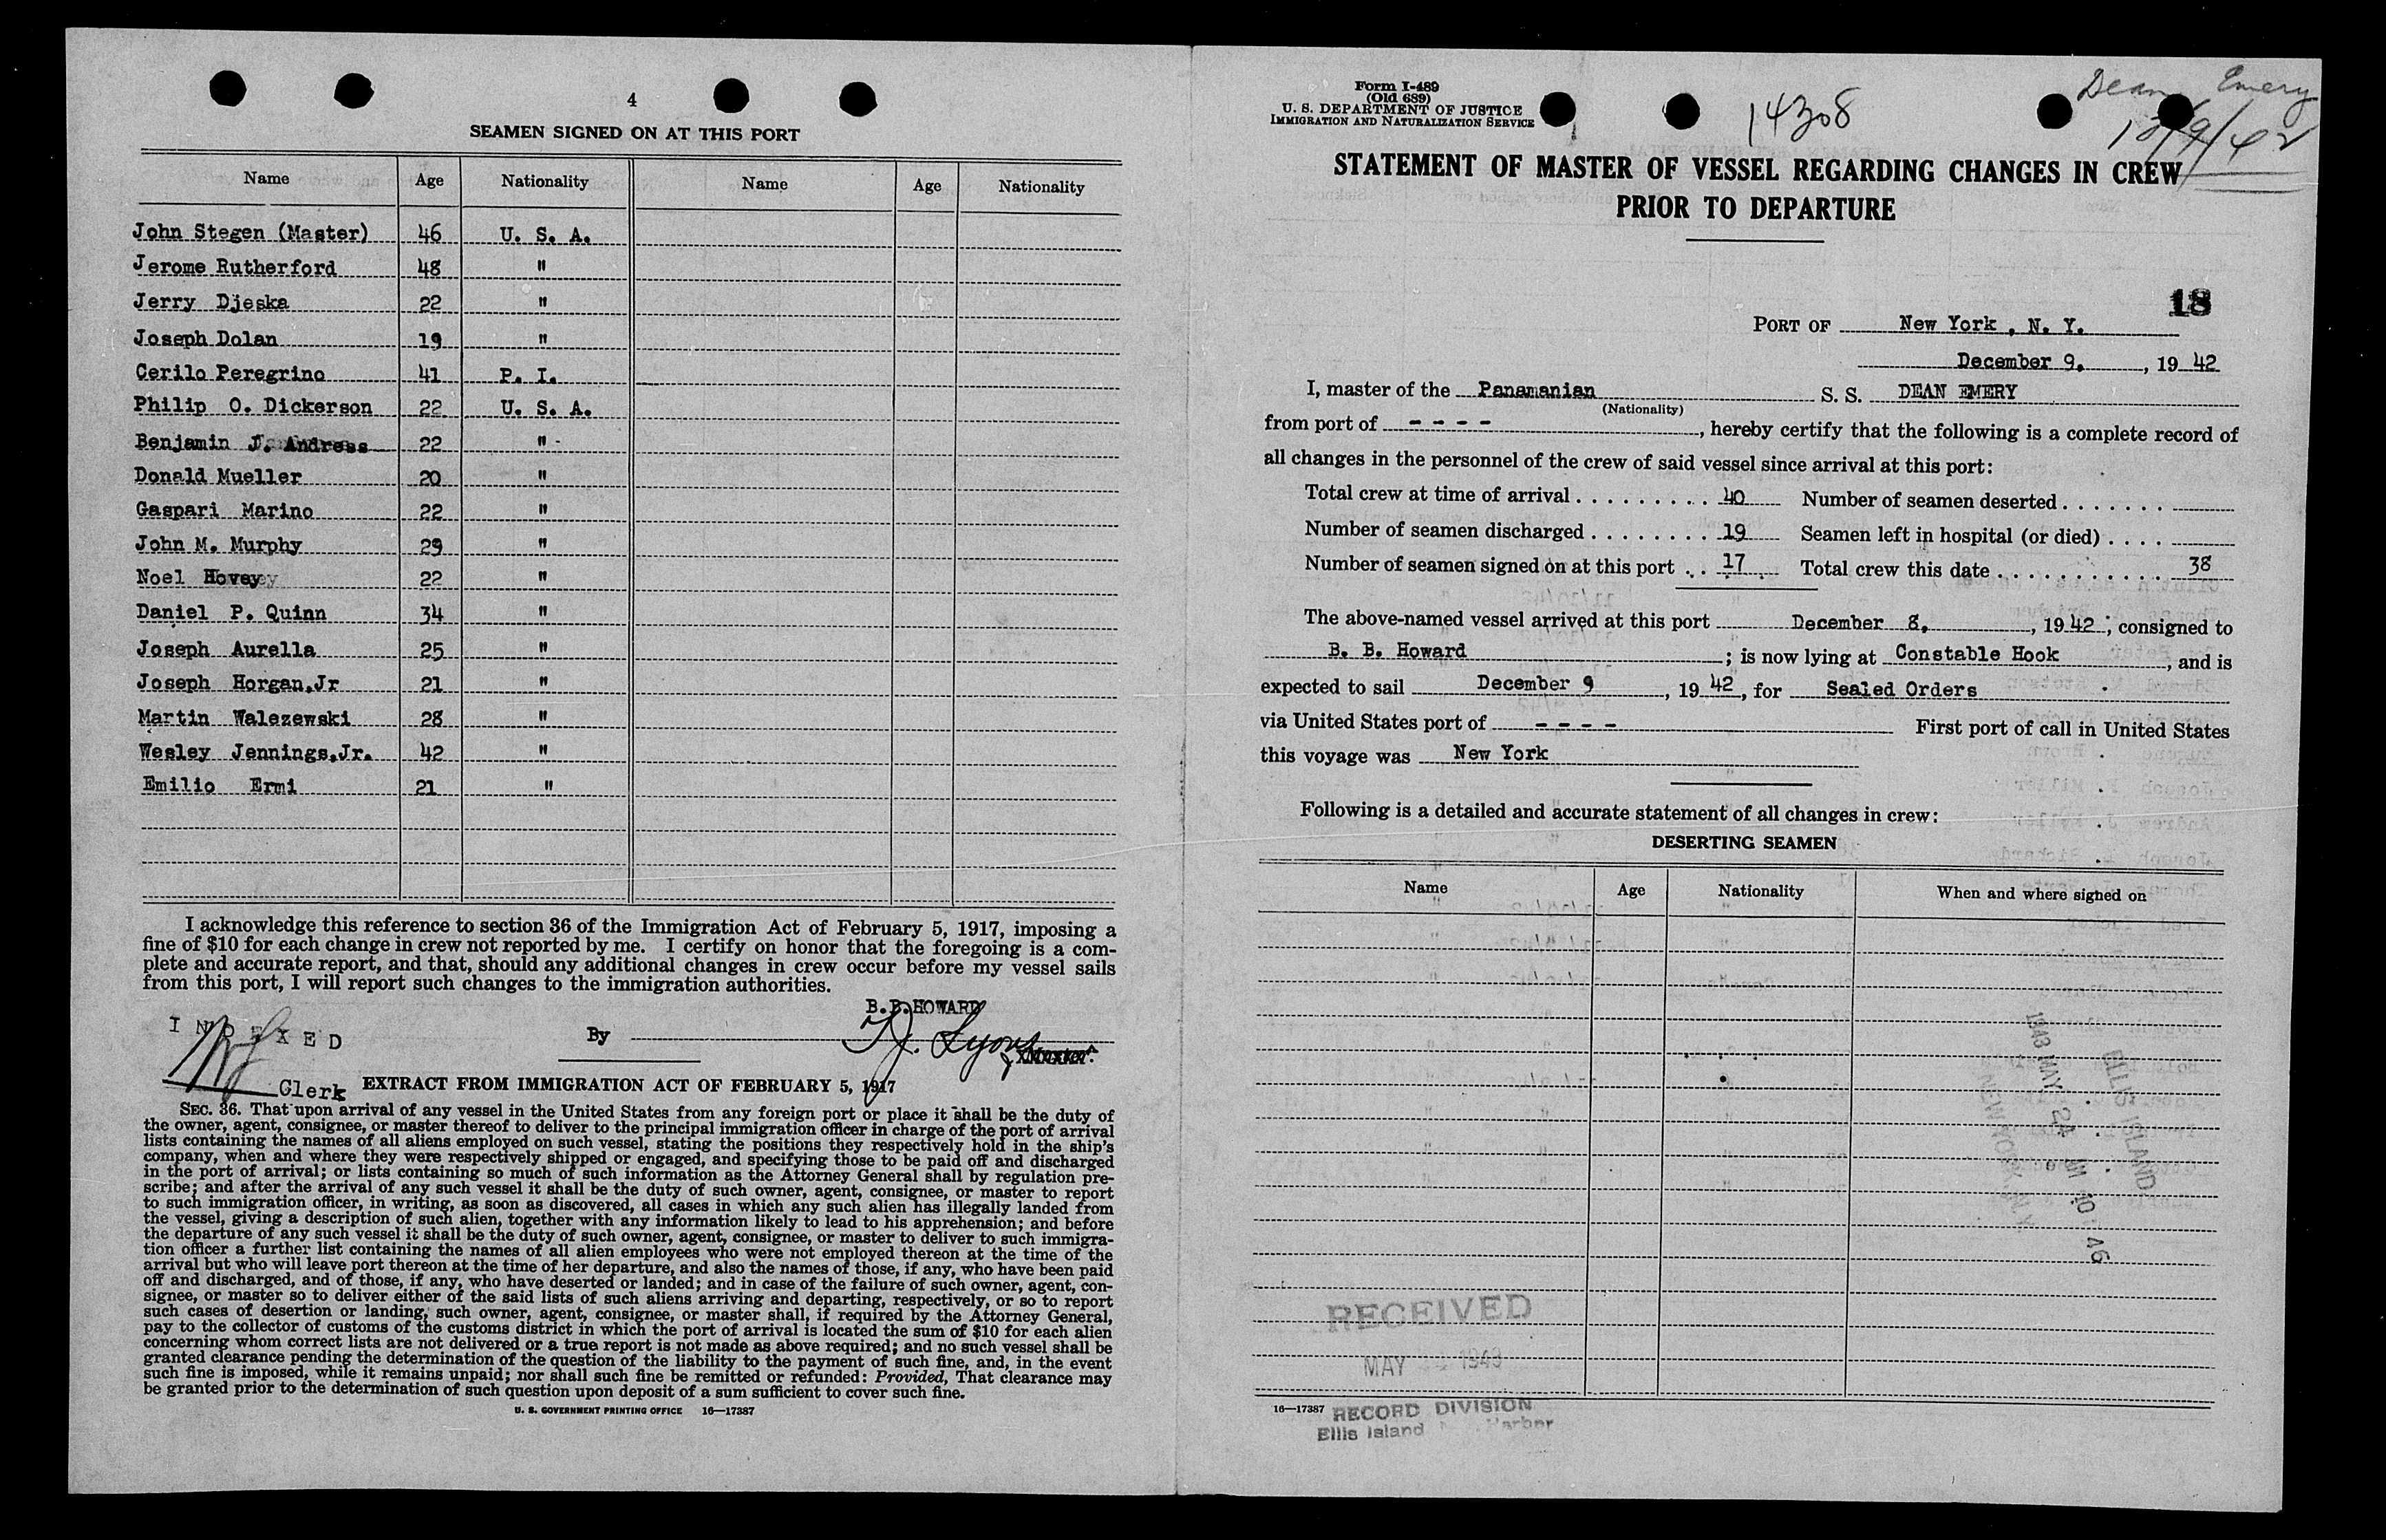 4
SEAMEN SIGNED ON AT THIS PORT
Name Age Nationality Name Age Nationality
John Stegen (Master) 46 U. S. A.
Jerome Rutherford 48 "
Jerry Djeska 22 "
Joseph Dolan 19 "
Cerilo Peregrino 41 P. I.
Philip O. Dickerson 22 U. S. A.
Benjamin J. Andress 22 "
Donald Mueller 20 "
Gaspari Marino 22 "
John M. Murphy 29 "
Noel Hovey 22 "
Daniel P. Quinn 34 "
Joseph Aurella 25 "
Joseph Horgan,Jr 21 "
Martin Walezewski 28 "
Wesley Jennings,Jr. 42 "
Emilio Ermi 21 "
I acknowledge this reference to section 36 of the Immigration Act of February 5, 1917, imposing a
fine of $10 for each change in crew not reported by me. I certify on honor that the foregoing is a com-
plete and accurate report, and that, should any additional changes in crew occur before my vessel sails
from this port, I will report such changes to the immigration authorities.
B.B.HOWARD
INDEXED
By
Lyons
Master.
Clerk
EXTRACT FROM IMMIGRATION ACT OF FEBRUARY 5, 1917
SEC. 36. That upon arrival of any vessel in the United States from any foreign port or place it shall be the duty of
the owner, agent, consignee, or master thereof to deliver to the principal immigration officer in charge of the port of arrival
lists containing the names of all aliens employed on such vessel, stating the positions they respectively hold in the ship's
company, when and where they were respectively shipped or engaged, and specifying those to be paid off and discharged
in the port of arrival; or lists containing so much of such information as the Attorney General shall by regulation pre-
scribe; and after the arrival of any such vessel it shall be the duty of such owner, agent, consignee, or master to report
to such immigration officer, in writing, as soon as discovered, all cases in which any such alien has illegally landed from
the vessel, giving a description of such alien, together with any information likely to lead to his apprehension; and before
the departure of any such vessel it shall be the duty of such owner, agent, consignee, or master to deliver to such immigra-
tion officer a further list containing the names of all alien employees who were not employed thereon at the time of the
arrival but who will leave port thereon at the time of her departure, and also the names of those, if any, who have been paid
off and discharged, and of those, if any, who have deserted or landed; and in case of the failure of such owner, agent, con-
signee, or master so to deliver either of the said lists of such aliens arriving and departing, respectively, or so to report
such cases of desertion or landing, such owner, agent, consignee, or master shall, if required by the Attorney General,
pay to the collector of customs of the customs district in which the port of arrival is located the sum of $10 for each alien
concerning whom correct lists are not delivered or a true report is not made as above required; and no such vessel shall be
granted clearance pending the determination of the question of the liability to the payment of such fine, and, in the event
such fine is imposed, while it remains unpaid; nor shall such fine be remitted or refunded: Provided, That clearance may
be granted prior to the determination of such question upon deposit of a sum sufficient to cover such fine.
U. S. GOVERNMENT PRINTING OFFICE 16—17387
Form I-489
(Old 689)
U. S. DEPARTMENT OF JUSTICE
IMMIGRATION AND NATURALIZATION SERVICE
14308
Dean Emery
12/9/42
STATEMENT OF MASTER OF VESSEL REGARDING CHANGES IN CREW
PRIOR TO DEPARTURE
18
PORT OF New York, N. Y.
December 9, , 19 42
I, master of the Panamanian S. S. DEAN EMERY
(Nationality)
from port of - - - - , hereby certify that the following is a complete record of
all changes in the personnel of the crew of said vessel since arrival at this port:
Total crew at time of arrival . . . . . . . . . 40 Number of seamen deserted . . . . . . .
Number of seamen discharged . . . . . . . . 19 Seamen left in hospital (or died) . . . .
Number of seamen signed on at this port . . 17 Total crew this date . . . . . . . . . . . 38
The above-named vessel arrived at this port December 8, , 19 42 ; consigned to
B. B. Howard ; is now lying at Constable Hook , and is
expected to sail December 9 , 19 42 , for Sealed Orders
via United States port of - - - - First port of call in United States
this voyage was New York
Following is a detailed and accurate statement of all changes in crew:
DESERTING SEAMEN
Name Age Nationality When and where signed on
ELLIS ISLAND
1943 MAY 24 AM 10 46
NEW YORK N.Y.
RECEIVED
MAY 1943
16—17387
RECORD DIVISION
Ellis Island Harbor